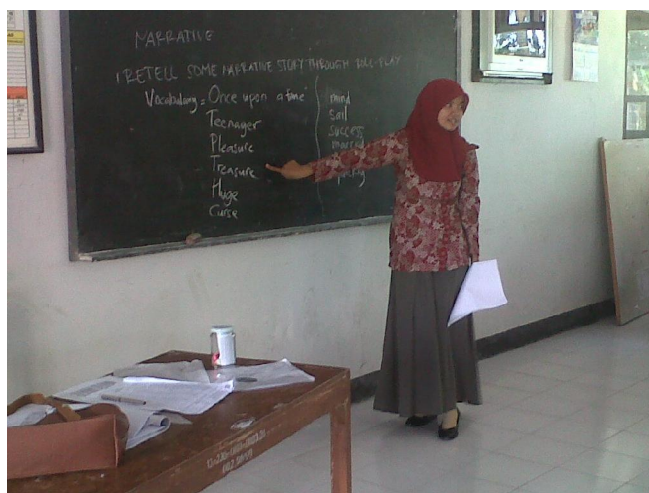 NARRATIVE
RETELL SOME NARRATIVE STORY THROUGH ROLE-PLAY
Vocabulary = Once upon a time
Teenager
Pleasure
Treasure
Huge
Curse
mind
sail
success
married